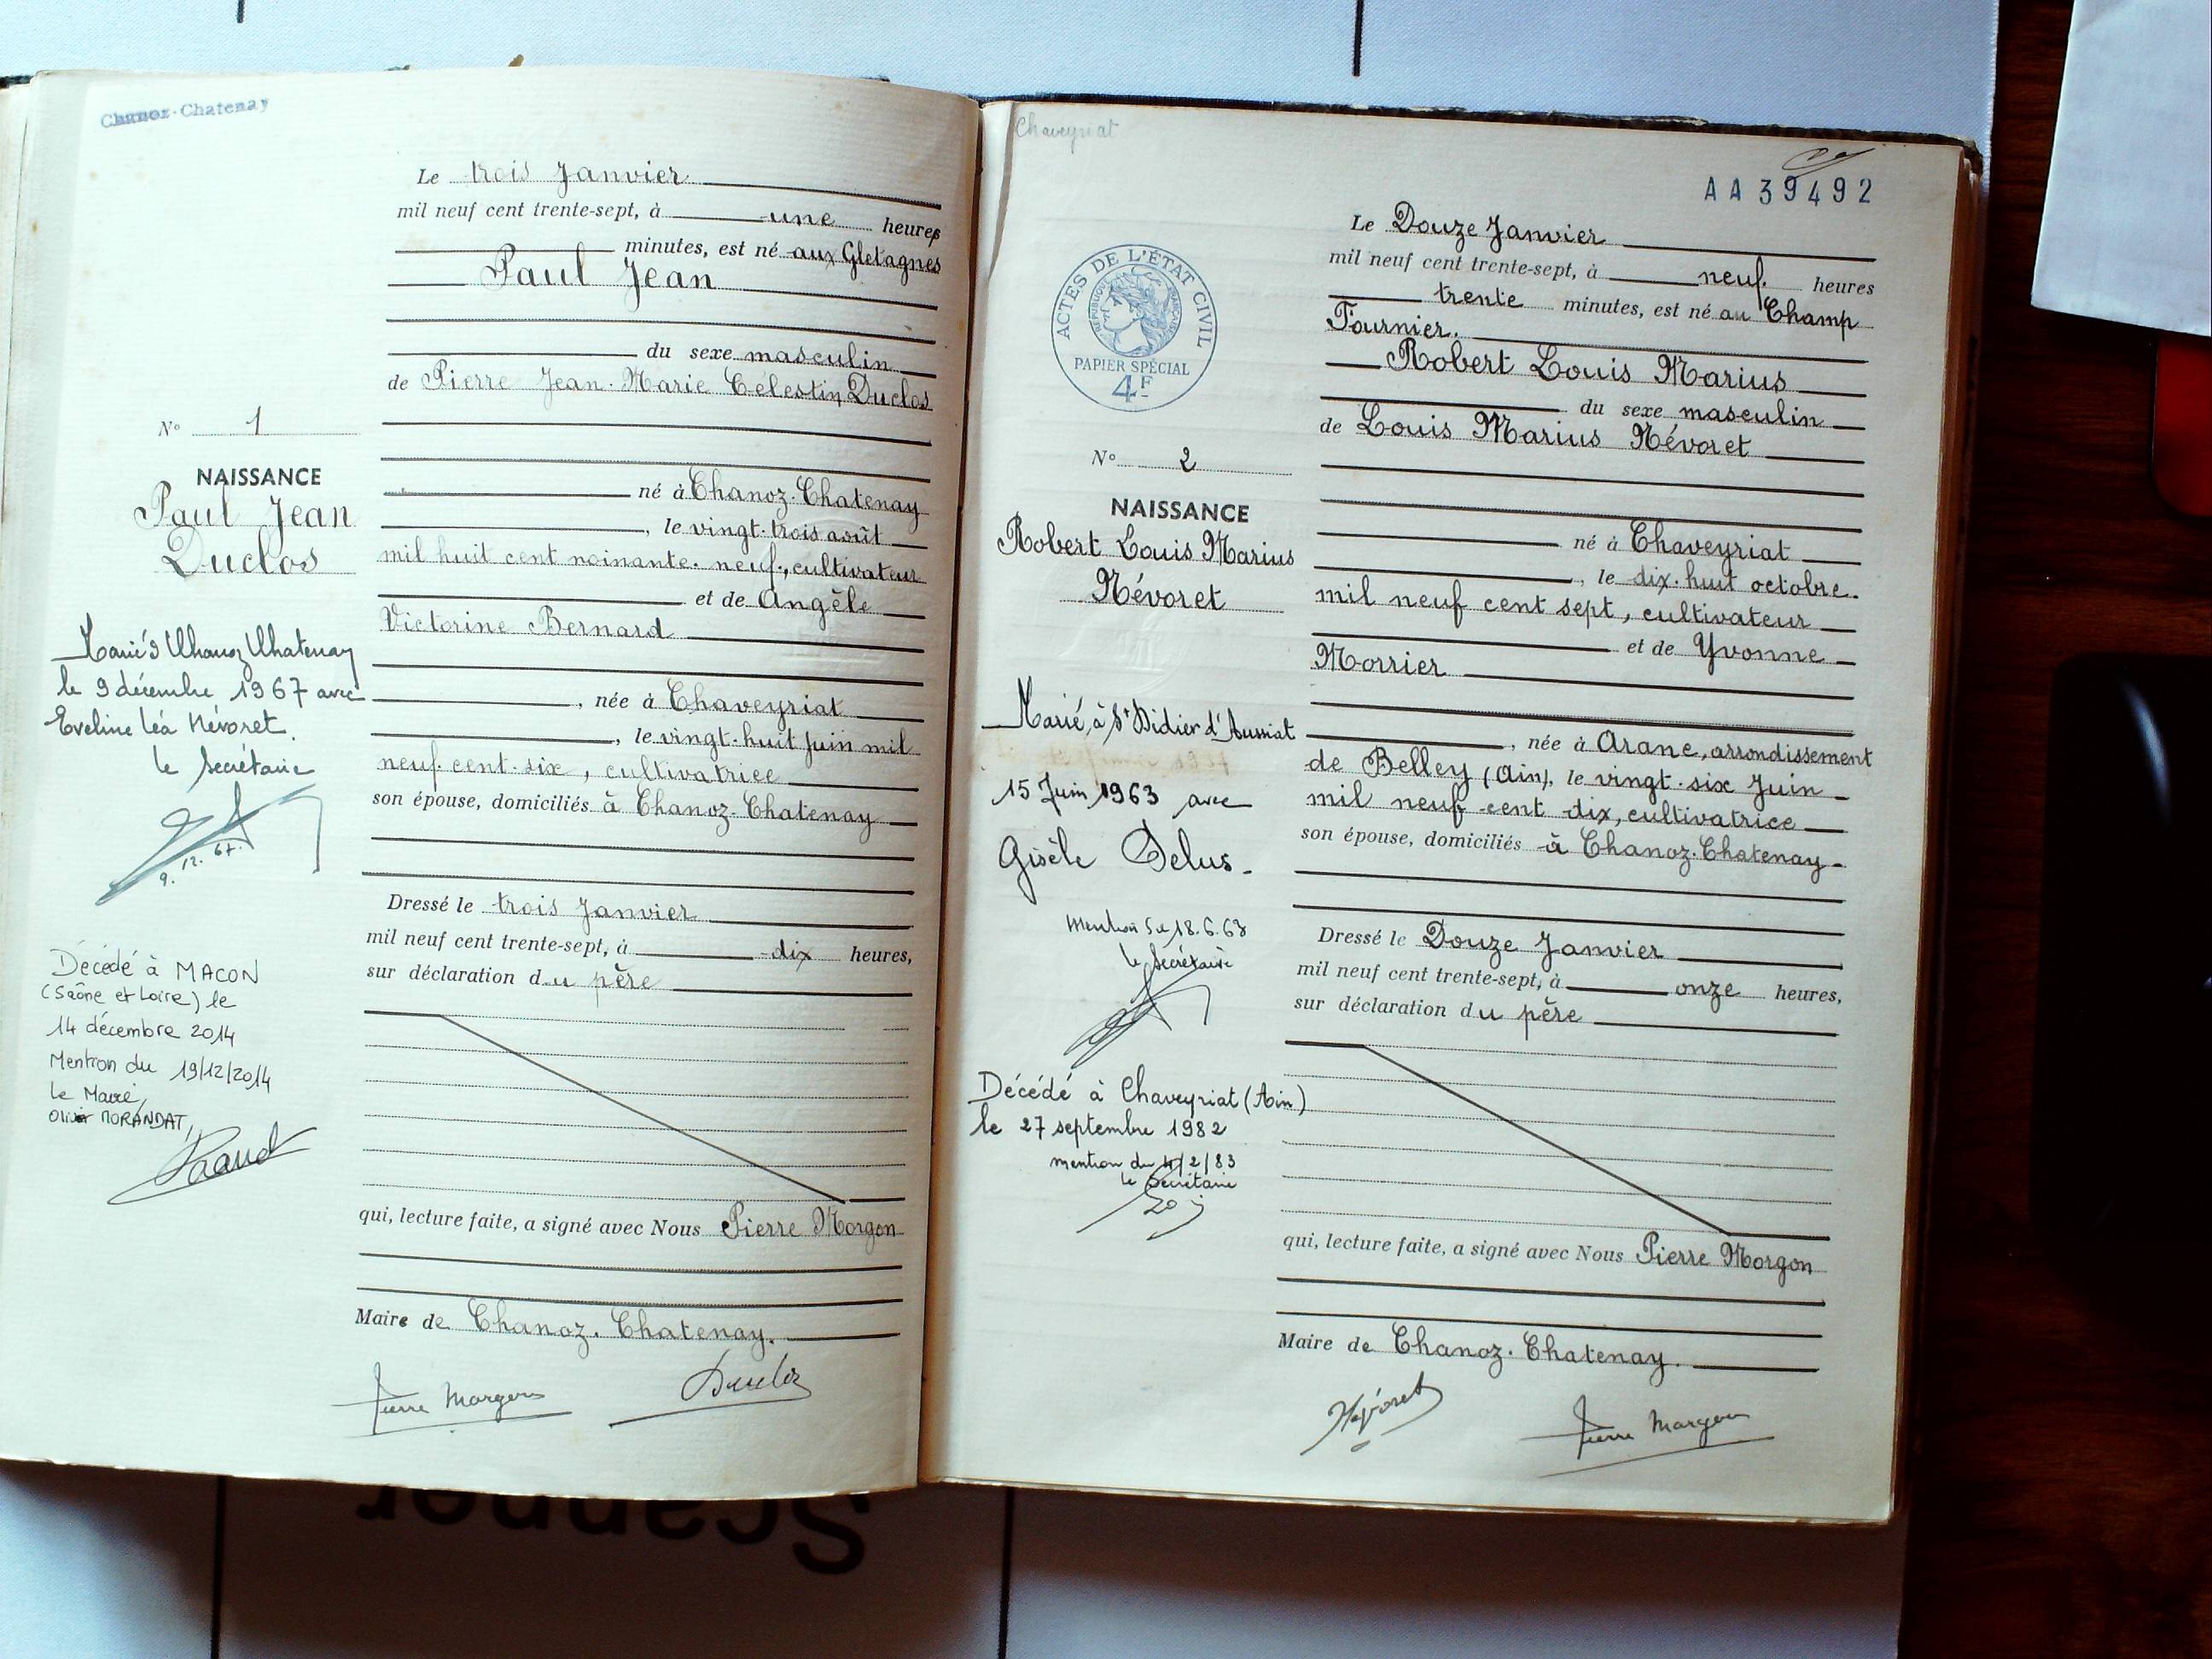 Chanoz-Chatenay
Le trois Janvier
mil neuf cent trente-sept, à une heures
minutes, est né aux Gletagnes
Paul Jean
du sexe masculin
de Pierre Jean-Marie Célestin Duclos
N° 1
NAISSANCE
Paul Jean
Duclos
né à Chanoz-Chatenay
, le vingt-trois août
mil huit cent noinante-neuf, cultivateur
et de Angèle
Victorine Bernard
, née à Chaveyriat
, le vingt-huit Juin mil
neuf-cent-six, cultivatrice
son épouse, domiciliés à Chanoz-Chatenay
Marié à Chanoz Chatenay
le 9 décembre 1967 avec
Eveline Léa Névoret.
le Secrétaire
9. 12. 67.
Dressé le trois Janvier
mil neuf cent trente-sept, à dix heures,
sur déclaration du père
Décédé à MACON
(Saône et Loire) le
14 décembre 2014
Mention du 19/12/2014
Le Maire,
Olivier MORANDAT,
qui, lecture faite, a signé avec Nous Pierre Morgon
Maire de Chanoz-Chatenay.
Pierre Morgon
Duclos
Chaveyriat
AA39492
Le Douze Janvier
mil neuf cent trente-sept, à neuf heures
trente minutes, est né au Champ
Fournier.
Robert Louis Marius
du sexe masculin
de Louis Marius Névoret
ACTES DE L'ÉTAT CIVIL
RÉPUBLIQUE FRANÇAISE
PAPIER SPÉCIAL
4F
N° 2
NAISSANCE
Robert Louis Marius
Névoret
né à Chaveyriat
, le dix-huit octobre
mil neuf cent sept, cultivateur
et de Yvonne
Morrier
, née à Arane, arrondissement
de Belley (Ain), le vingt-six Juin
mil neuf cent dix, cultivatrice
son épouse, domiciliés à Chanoz-Chatenay
Marié, à St Didier d'Aussiat
15 Juin 1963 avec
Gisèle Delus.
Mention le 18.6.63
le Secrétaire
Dressé le Douze Janvier
mil neuf cent trente-sept, à onze heures,
sur déclaration du père
Décédé à Chaveyriat (Ain)
le 27 septembre 1982
mention du 4/2/83
le Secrétaire
qui, lecture faite, a signé avec Nous Pierre Morgon
Maire de Chanoz-Chatenay.
Névoret
Pierre Morgon
Scanner